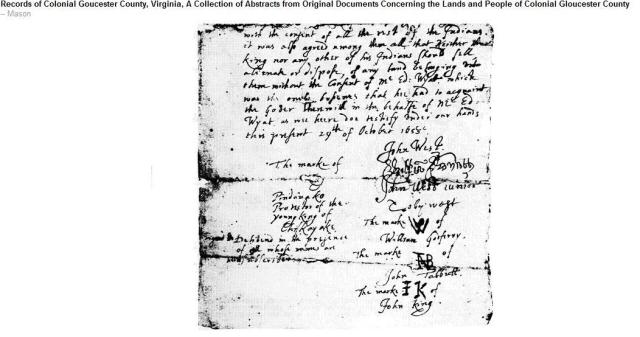 Records of Colonial Goucester County, Virginia, A Collection of Abstracts from Original Documents Concerning the Lands and People of Colonial Gloucester County
– Mason
with the consent of all the rest of the Indians.
it was also agreed among them all, that Neither the
king nor any other of his Indians should sell
alienate or dispose, of any land belonging unto
them without the Consent of Mr Ed: Wyat which
was the only business that he had to acquaint
the Goder therewith in the behalfe of Mr Ed
Wyat, as wee heere doe testify under our hands
this present 29th of October 1655:
John West.
The marke of
John West iunior
Pindavako
Toby west
Protector of the
young king of
The marke W of
Chiskoyake
William Godfrey.
Signed & Delivered in the presence
of all whose names are
The marke of
subscribed
John Talbutt
The marke IK of
John King